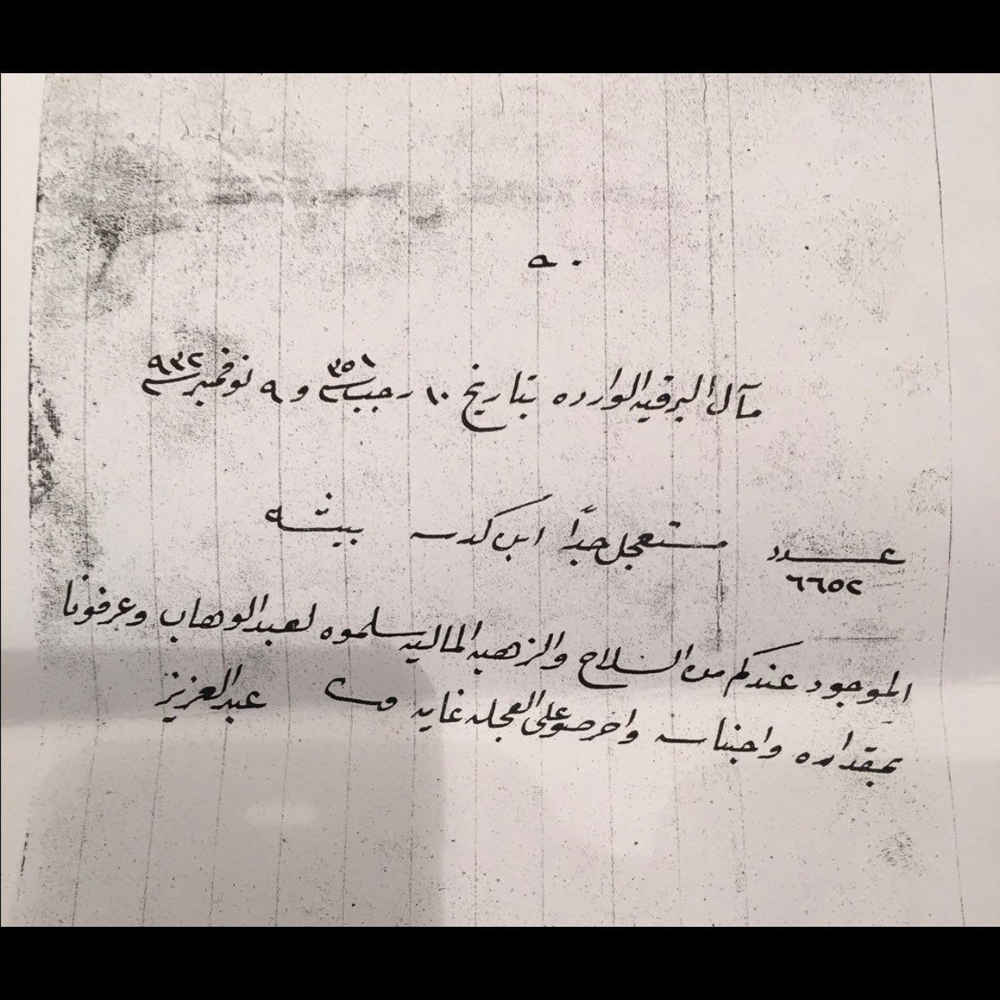 مآل البرقيه الوارده بتاريخ ١٠ رجب سنة ٣٥١ و ٩ نوفمبر سنة ٩٣٢
عدد مستعجل جدًا ابن كدسه بيشه
٦٦٥٢
الموجود عندكم من السلاح والزهبه الماليه سلموه لعبدالوهاب وعرفونا
بمقداره واجناسه واحرصو على العجله غايه عبدالعزيز